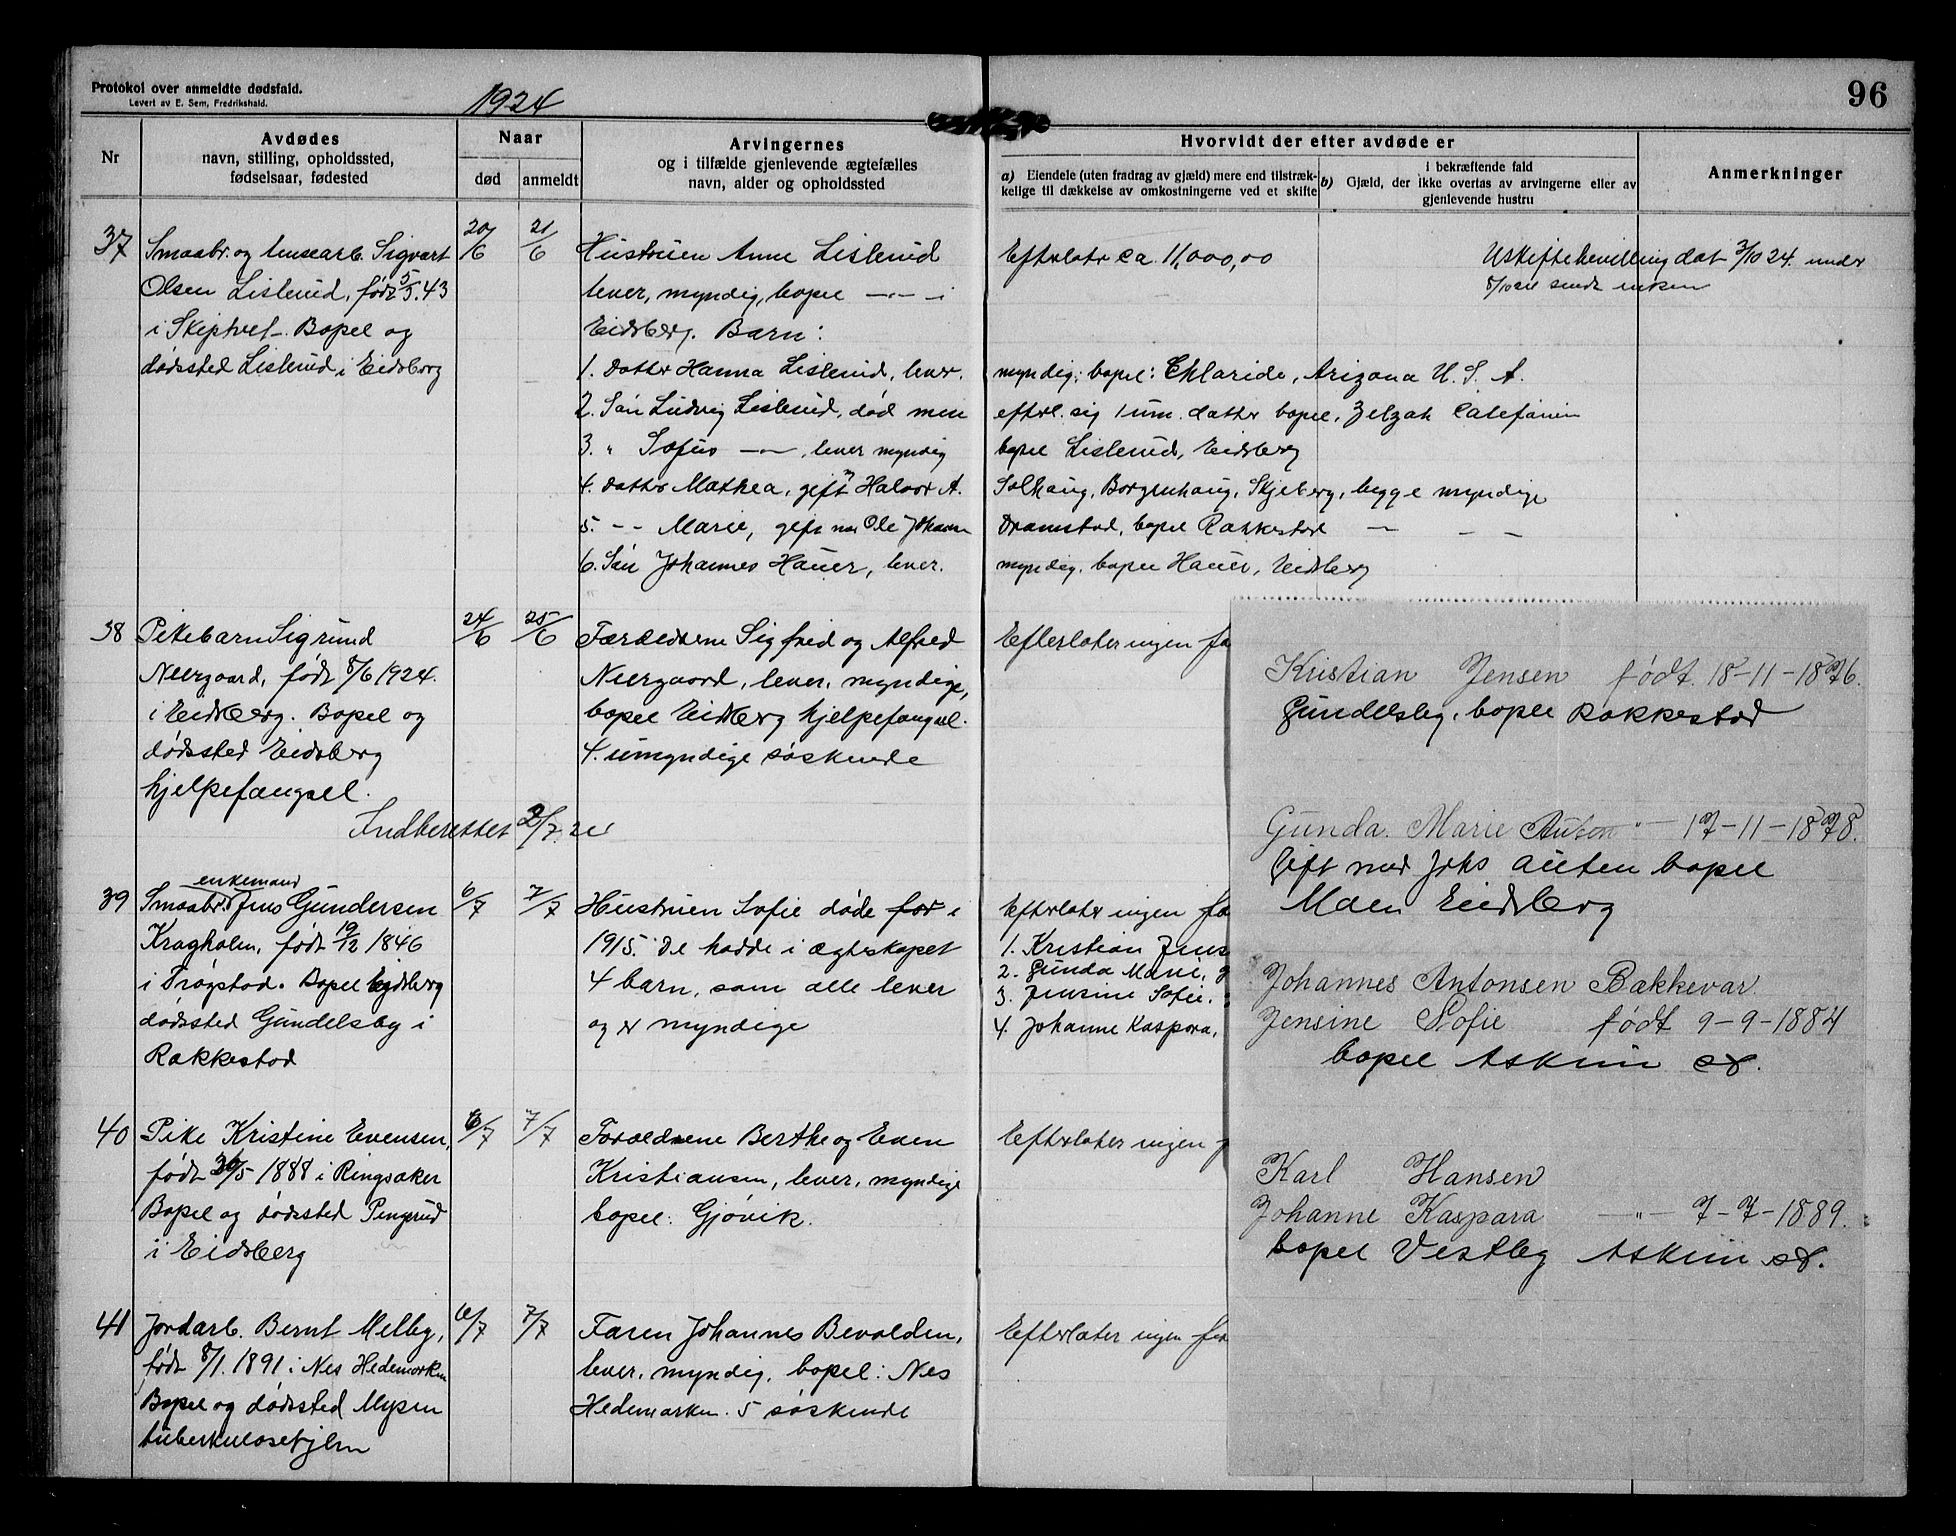 Protokol over anmeldte dødsfald.
Levert av E. Sem, Fredrikshald.
1924
96
Nr
Avdødes
navn, stilling, opholdssted,
fødselsaar, fødested
Naar
død
anmeldt
Arvingernes
og i tilfælde gjenlevende ægtefælles
navn, alder og opholdssted
Hvorvidt der efter avdøde er
a) Eiendele (uten fradrag av gjæld) mere end tilstræk-
kelige til dækkelse av omkostningerne ved et skifte
i bekræftende fald
b) Gjæld, der ikke overtas av arvingerne eller av
gjenlevende hustru
Anmerkninger
37
Smaabr. og husearb. Sigvart
Olsen Lislerud, født 5/5.43
i Skiptvet. Bopel og
dødssted Lislerud i Eidsberg
20/6
21/6
Hustruen Anne Lislerud
lever, myndig, bopel —"— i
Eidsberg. Barn:
1. Datter Hanna Lislerud, lever.
2. Søn Ludvig Lislerud, død men
3. " Sofus —"—, lever myndig
4. Datter Mathea, gift m Halvor A.
5. —"— Marie, gift med Ole Johan
6. Søn Johannes Hauer, lever.
Efterlater ca. 11,000,00
myndig; bopel: Chloride, Arizona U. S. A.
efterl. sig 1 um. datter bopel, Zelzah
bopel Lislerud, Eidsberg
Solhaug, Borgenhaug, Skjeberg, begge myndige
Dramstad, bopel Rakkestad — — —
myndig. bopel Hauer, Eidsberg
Uskiftebevilling dat 3/10 24. under
8/10 sendt enken
38
Pikebarn Sigrund
Neergaard, født 8/6 1924.
i Eidsberg. Bopel og
dødssted Eidsberg
hjelpefængsel.
24/6
25/6
Forældrene Sigfred og Alfred
Neergaard, lever, myndige,
bopel Eidsberg hjelpefængsel.
4. umyndige søskende
Efterlater ingen fo
Indberettet 2/7. 24
39
enkemand
Smaabr. Jens Gundersen
Kragholm, født 19/12 1846
i Trøgstad. Bopel Eidsberg
dødssted Gundelsby i
Rakkestad
6/7
7/7
Hustruen Sofie døde før i
1915. De hadde i ægteskapet
4 barn, som alle lever
og er myndige
Efterlater ingen fo
1. Kristian Jens
2. Gunda Marie, g
3. Jensine Sofie.
4. Johanne Kaspara,
40
Pike Kristine Evensen,
født 30/5 1888 i Ringsaker
Bopel og dødssted Pengerud
i Eidsberg
6/7
7/7
Forældrene Berthe og Even
Kristiansen, lever, myndige
bopel: Gjøvik.
Efterlater ingen f
41
Jordarb. Bernt Melby,
født 8/1. 1891 i Nes Hedemarken
Bopel og dødssted Mysen
tuberkulosehjem
6/7
7/7
Faren Johannes Bevolden,
lever, myndig, bopel: Nes
Hedemarken. 5 søskende
Efterlater ingen fo
Kristian Jensen født 18-11-1876.
Gundelsby, bopel Rakkestad
Gunda. Marie Auten —"— 17-11-1878.
Gift med Johs Auten bopel
Moen Eidsberg
Johannes Antonsen Bakkevar
Jensine Sofie født 9-9-1884
bopel Askim sd.
Karl Hansen
Johanne Kaspara —"— 7-7-1889.
bopel Vestby Askim sd.